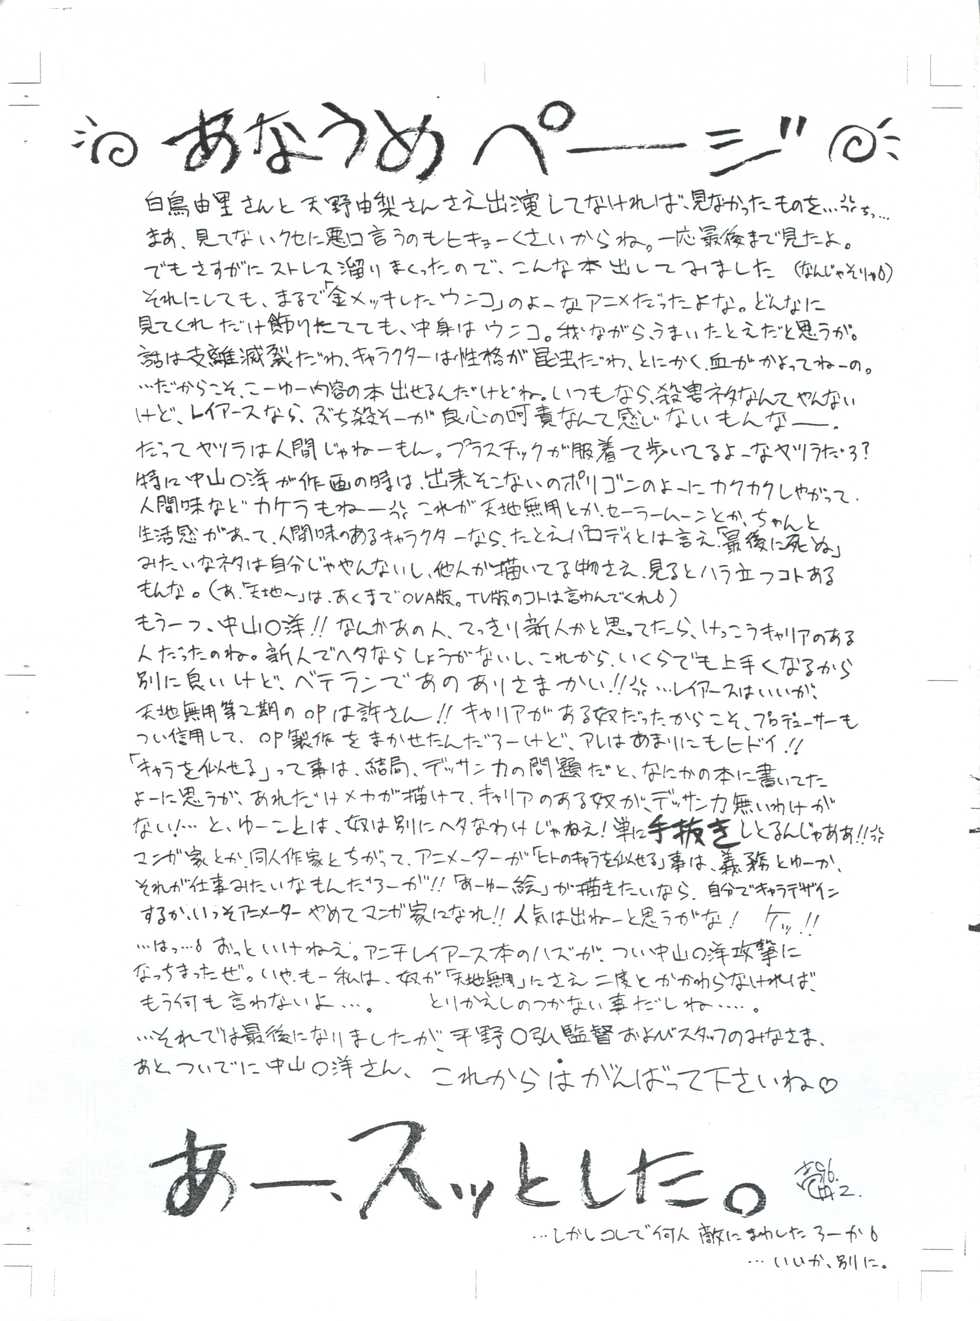 あなうめページ
白鳥由里さんと天野由梨さんさえ出演してなければ、見なかったものを…ちっ…
まあ、見てないクセに悪口言うのもヒキョーくさいからね。一応最後まで見たよ。
でもさすがにストレス溜りまくったので、こんな本出してみました(なんじゃそりゃ)
それにしても、まるで「金メッキしたウンコ」のよーなアニメだったよな。どんなに
見てくれだけ飾りたてても、中身はウンコ。我ながら、うまいたとえだと思うが。
話は支離滅裂だわ、キャラクターは性格が昆虫だわ、とにかく、血がかよってねーの。
…だからこそ、こーゆー内容の本出せるんだけどね。いつもなら、殺害ネタなんてやんない
けど、レイアースなら、ぶち殺そーが良心の呵責なんて感じないもんなー。
だってヤツラは人間じゃねーもん。プラスチックが服着て歩いてるよーなヤツラだろ?
特に中山〇洋が作画の時は、出来そこないのポリゴンのよーにカクカクしやがって、
人間味などカケラもねー これが天地無用とか、セーラームーンとか、ちゃんと
生活感があって、人間味のあるキャラクターなら、たとえパロディとは言え、「最後に死ぬ」
みたいなネタは自分じゃやんないし、他人が描いてる物さえ、見るとハラ立つコトある
もんな。(あ、「天地〜」は、あくまでOVA版。TV版のコトは言わんでくれ)
もう一つ、中山〇洋!!なんかあの人、てっきり新人かと思ってたら、けっこうキャリアのある
人だったのね。新人でヘタならしょうがないし、これから、いくらでも上手くなるから
別に良いけど、ベテランであのありさまかい!!…レイアースはいいが、
天地無用第2期のOPは許さん!!キャリアがある奴だったからこそ、プロデューサーも
つい信用して、OP製作をまかせたんだろーけど、アレはあまりにもヒドイ!!
「キャラを似せる」って事は、結局、デッサン力の問題だと、なにかの本に書いてた
よーに思うが、あれだけメカが描けて、キャリアのある奴が、デッサン力無いわけが
ない!…と、ゆーことは、奴は別にヘタなわけじゃねえ!単に手抜きしとるんじゃああ!!
マンガ家とか、同人作家とちがって、アニメーターが「ヒトのキャラを似せる」事は、義務とゆーか、
それが仕事みたいなもんだろーが!!「あーゆー絵」が描きたいなら、自分でキャラデザイン
するか、いっそアニメーターやめてマンガ家になれ!!人気は出ねーと思うがな! ケッ!!
…はっ…おっといけねえ。アンチレイアース本のハズが、つい中山〇洋攻撃に
なっちまったぜ。いや、もー私は、奴が「天地無用」にさえ二度とかかわらなければ、
もう何も言わないよ…。 とりかえしのつかない事だしね…。
…それでは最後になりましたが、平野〇弘監督およびスタッフのみなさま、
あと、ついでに中山〇洋さん、これからはがんばって下さいね♡
あー、スッとした。
'96.
2.
…しかしコレで何人敵にまわしたろーか
…いいか、別に。